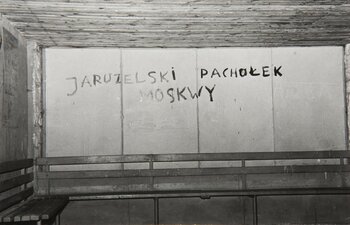 JARUZELSKI PACHOŁEK
MOSKWY